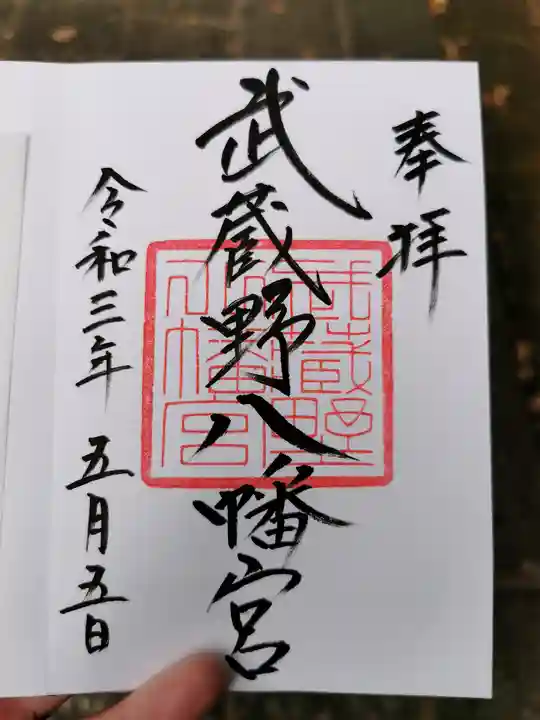 奉拝
武蔵野八幡宮
令和三年五月五日
武蔵野
八幡宮